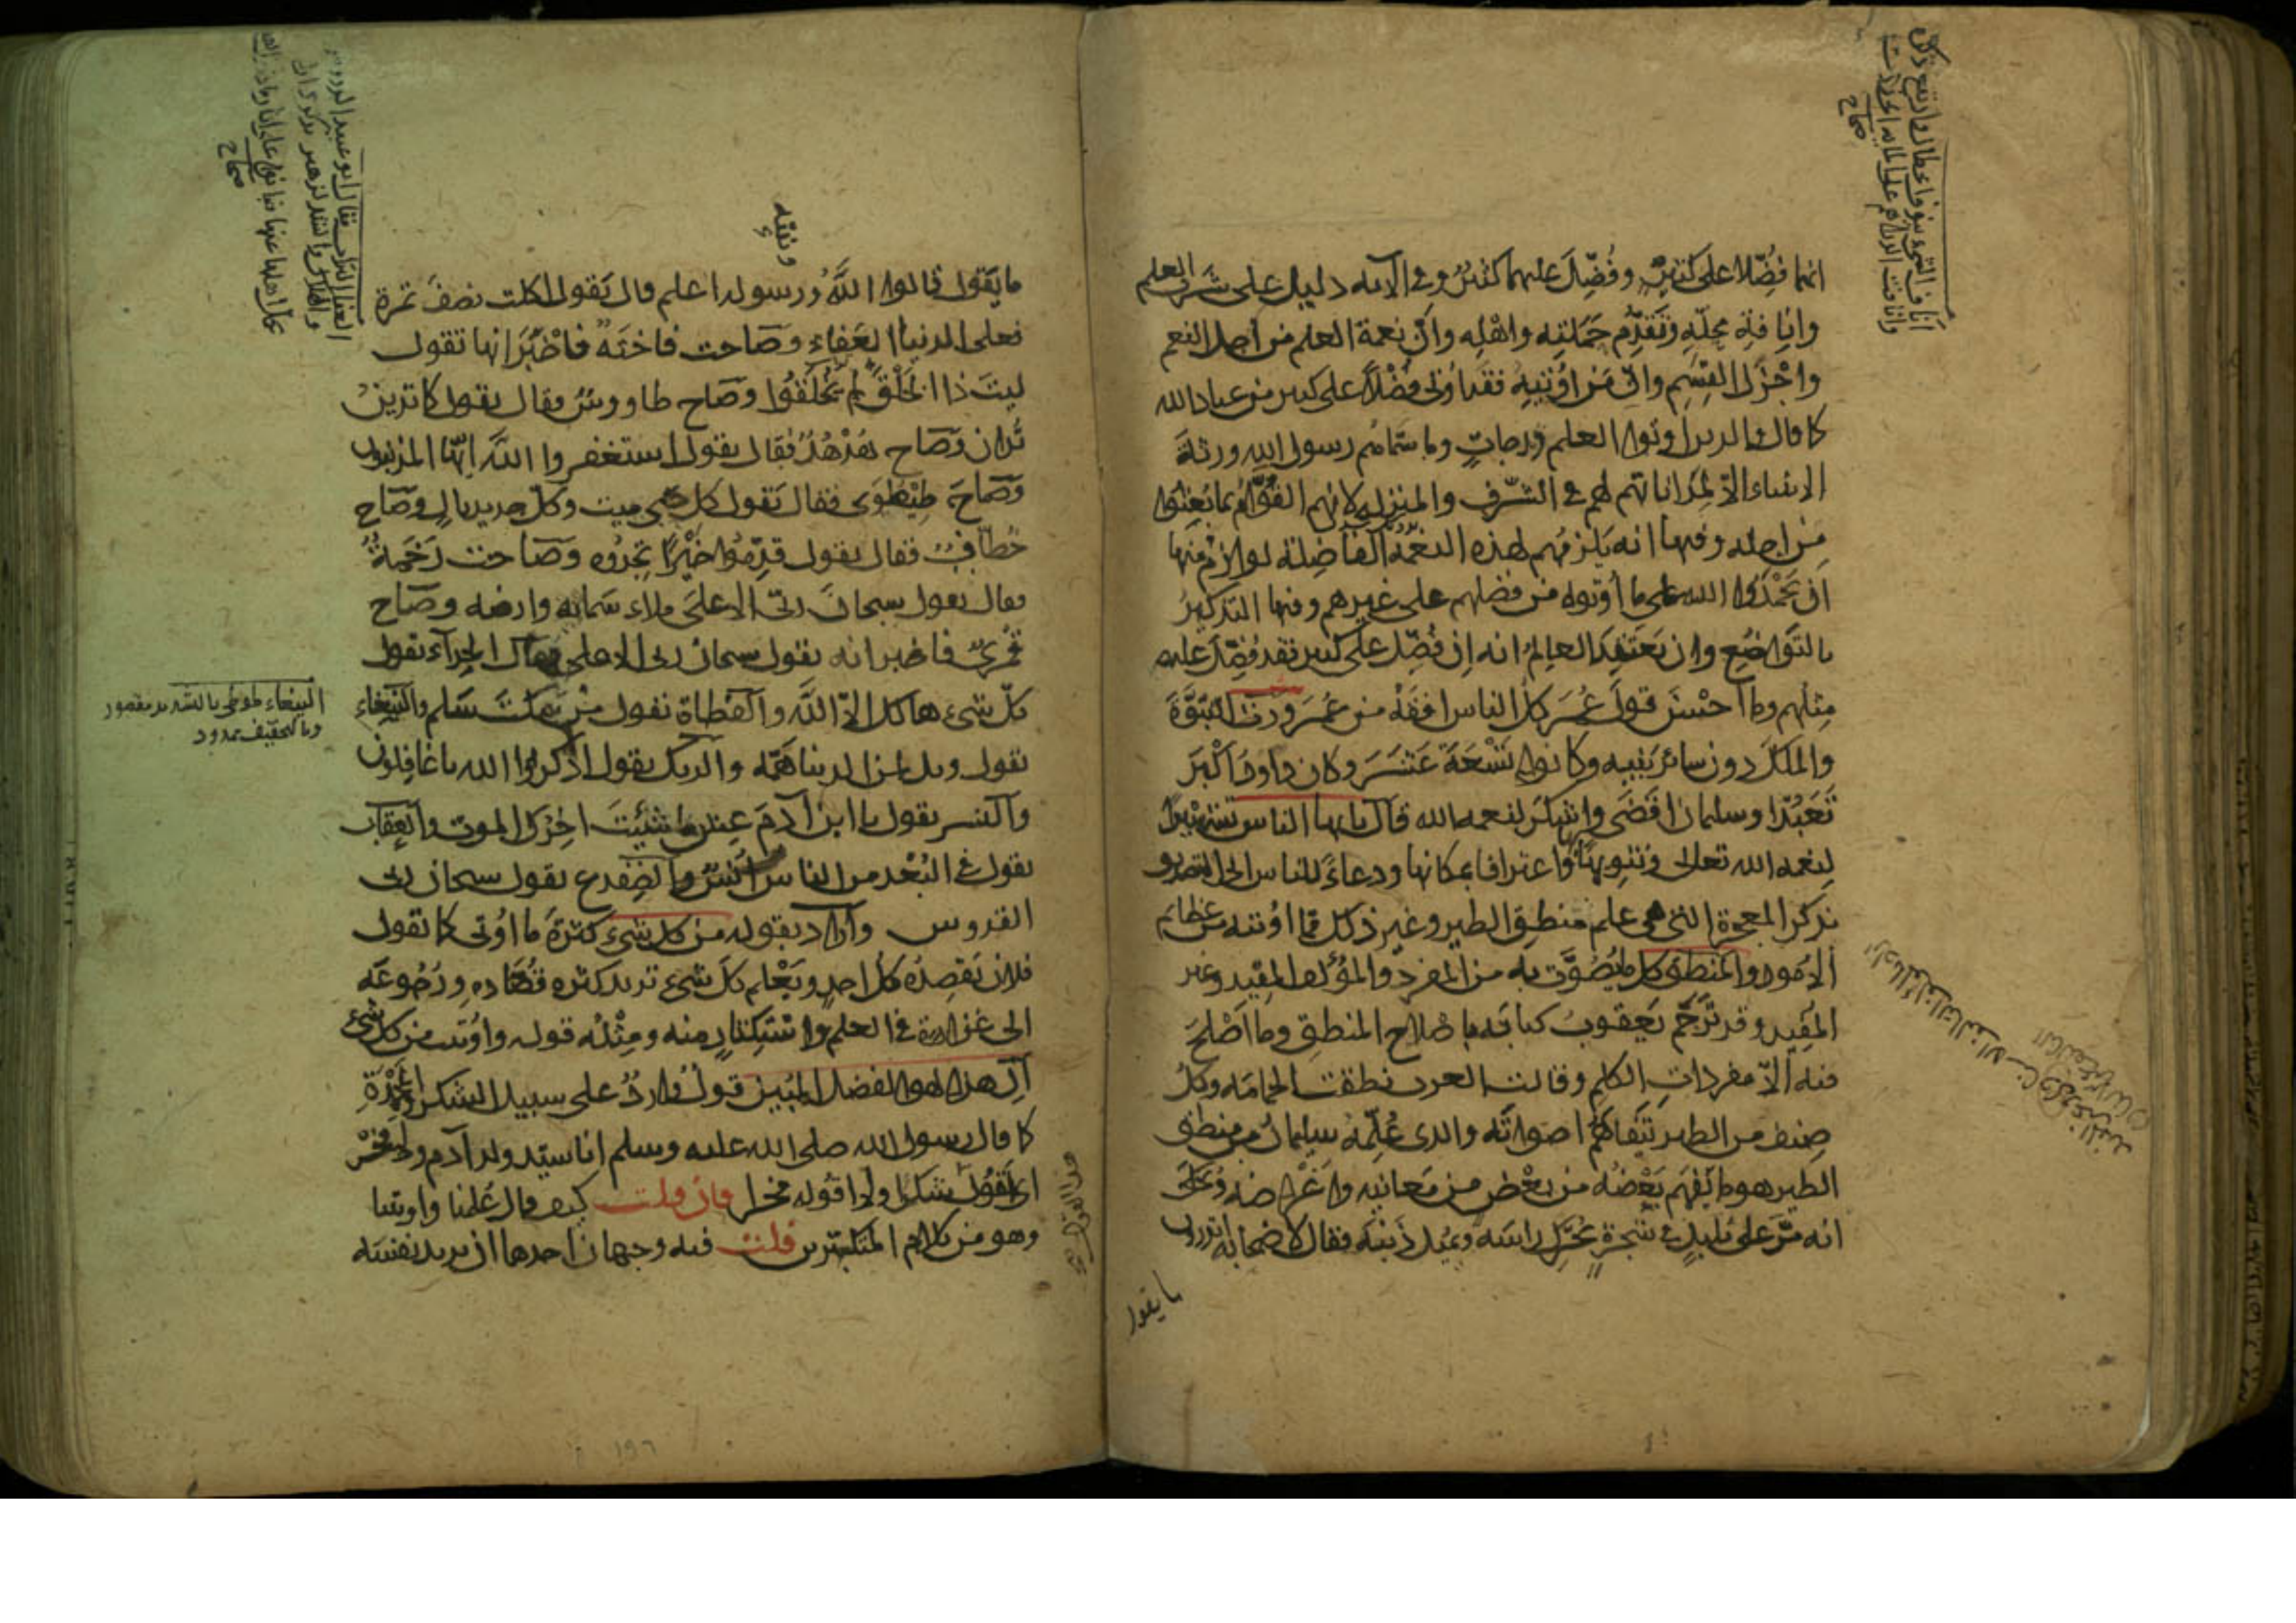 انهما فُضِّلا على كثيرٍ وفُضِّلَ عليهما كثيرٌ وفي الآية دليل على شرف العلم
وإنافةِ محلّه وتقدُّم حَمَلته وأهْلِه وأنّ نعمة العلم من أجل النعم
وأجْزَل القِسَم وأنّ مَن أُوتيهُ فقد أُوتي فَضْلاً على كثير من عباد الله
كما قال والذين أوتوا العلم درجاتٍ وما سمّاهم رسول الله ورثةَ
الانبياء إلاّ لمُداناتهم لهم في الشرف والمنزلة لانهم القُوّام بما بُعِثوا
من اجله وفيها انه يَلزمُهم لهذه النعمة الفاضِلة لوازمُ منها
ان يَحْمَدُوا الله على ما أُوتوه من فضلهم على غيرهم وفيها التذكيرُ
بالتواضُع وان يَعتقد العالِمُ انه إن فُضِّل على كثير فقد فُضِّل عليه
مثلُهم وما أحْسَنَ قولَ عُمَرَ كلّ الناس افقَهُ من عُمَرَ ورث النبوَّةَ
والملكَ دون سائر بَنِيه وكانوا تِسْعَةَ عَشَرَ وكان داود اكْبَرَ
تَعَبُّدا وسليمان اقضَى واشكرَ لنعمة الله قال يا يها الناس تشهيراً
لنعمة الله تعالى وتنويهًا واعترافا بمكانها ودعاءً للناس الى التصديق
بذكر المعجزة التي هي علم منطِق الطير وغير ذلك مما اوتيه من عظائم
الأمور والمنطق كل ما يُصَوَّت به من المفرد والمؤلف المفيد وغير
المفيد وقد تَرْجَم يَعقوبُ كتابَه باِصْلاح المنطِق وما أَصْلَحَ
فيه إلاّ مفرداتِ الكلم وقالت العرب نطقت الحمامة وكلُّ
صنف من الطير يَتَفاهم اصواتَه والذي عُلِّمه سليمانُ من منطق
الطير هو ما يَفهم بَعْضُه من بعْضٍ من مَعانيه وأغراضه وحُكي
انه مَرّ على بُلبلٍ في شجرةٍ يُحرِّك رأسَه ويُميل ذَنبَه فقال لاصحابه اتدرون
ما يقول
ما يَقول قالوا اللَّهُ ورسوله اعلم قال يَقول اكلت نصفَ تمرة
فعلى الدنيا العَفاء وصَاحت فاختَةٌ فاخْبَرَ انها تقول
ليتَ ذا الخلْقَ لم يُخلَقُوا وصَاح طاووسٌ فقال يقول كما تدينُ
تُدان وصَاح هُدْهُدٌ فقال يقول استغفروا اللّه ايها المذنبون
وَصَاحَ طِيْطَوَى فقال يَقول كل حيّ ميت وكلّ جديد بالٍ وصَاح
خُطّافٌ فقال يقول قدِّمُوا خَيْرًا تجدُوه وصَاحت رَخَمةٌ
فقال تقول سبحانَ ربّي الأعلى ملاءَ سَمائه وارضه وصَاح
قُمريٌّ فاخبر انه يقول سبحان ربي الأعلى وقال الحدأء يقول
كلّ شيء هالك إلاّ اللَّه والقطاة تقول مَنْ سكتَ سَلم والببغاء
تقول ويل لمن الدنيا هَمّه والديك يقول اذكروا الله يا غافلون
والنسر يقول يا ابن آدمَ عِش ما شئتَ آخِرُك الموت والعقاب
يقول في البُعْد من الناس أُنسٌ والضفدع يقول سبحان ربي
القدوس وأراد بقوله من كل شيء كثرةَ ما أُوتي كما تقول
فلان يَقصِدُه كل احدٍ ويَعْلم كلَّ شيء تريد كثرة قُصّاده ورُجوعَه
الى غزارة في العلم واستكثارٍ منه ومثلُه قوله واُوتيت من كل شيء
اِنّ هذا لهو الفضل المُبين قولٌ واردٌ على سبيل الشكر والمَحْمَدَةِ
كما قال رسول الله صلى الله عليه وسلم انا سيّد ولد آدم ولا فخْر
اي أقولُ شكرا ولا اقوله فخرا فإن قلت كيف قال عُلّمنا واوتينا
وهو من كلام المتكبّرين قلت فيه وجهان احدها ان يريد نفسَه
البيغاء طوطي بالتشديد مقصور
وبالتخفيف ممدود
صحاح
صحاح
١٩٦